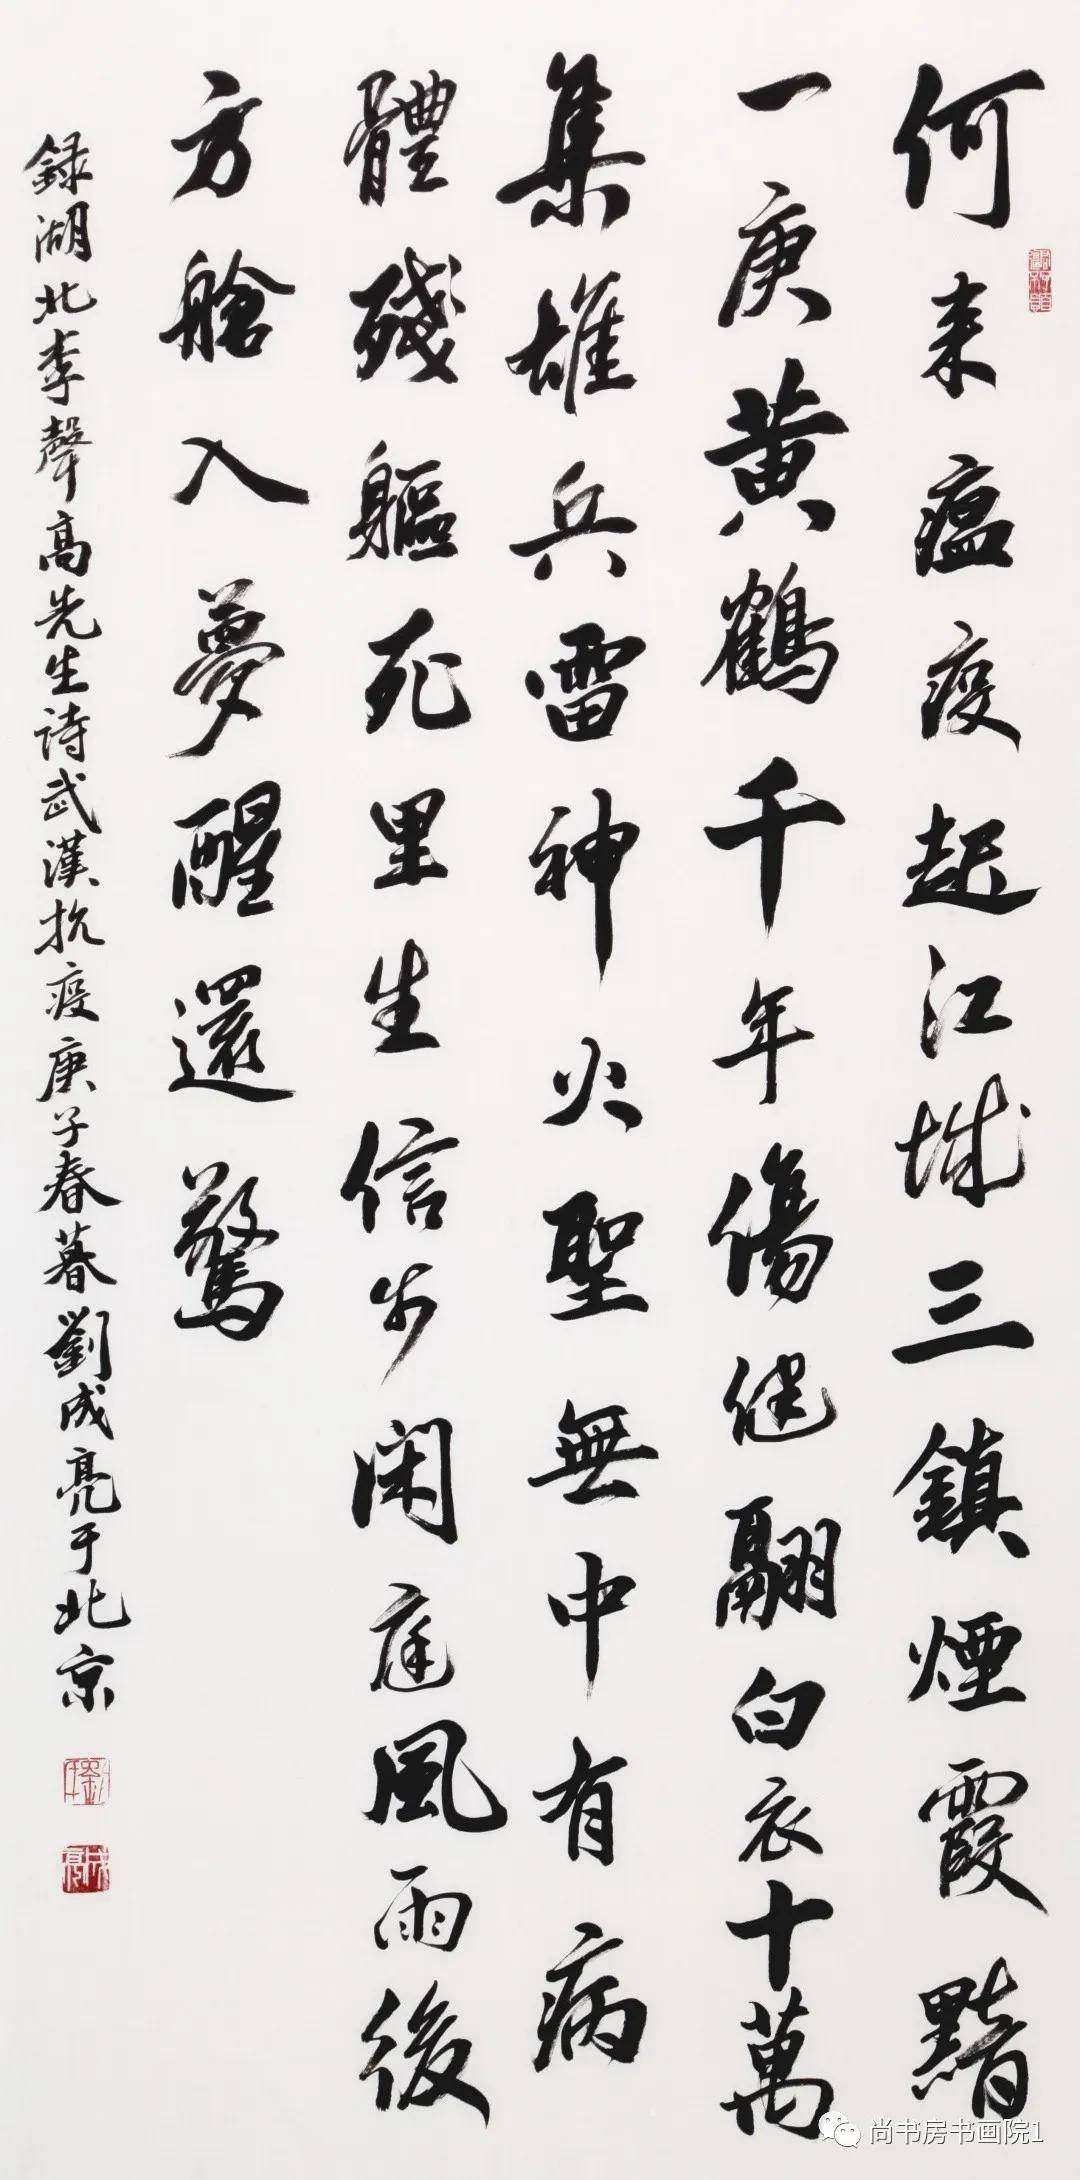 何来瘟疫起江城三鎮煙霞黯
一庚黄鶴千年傷健翮白衣十萬
集雄兵雷神火聖無中有病
體殘軀死里生信步闲庭風雨後
方艙入夢醒還驚
録湖北李聲高先生詩武漢抗疫庚子春暮劉成亮于北京
尚书房书画院1